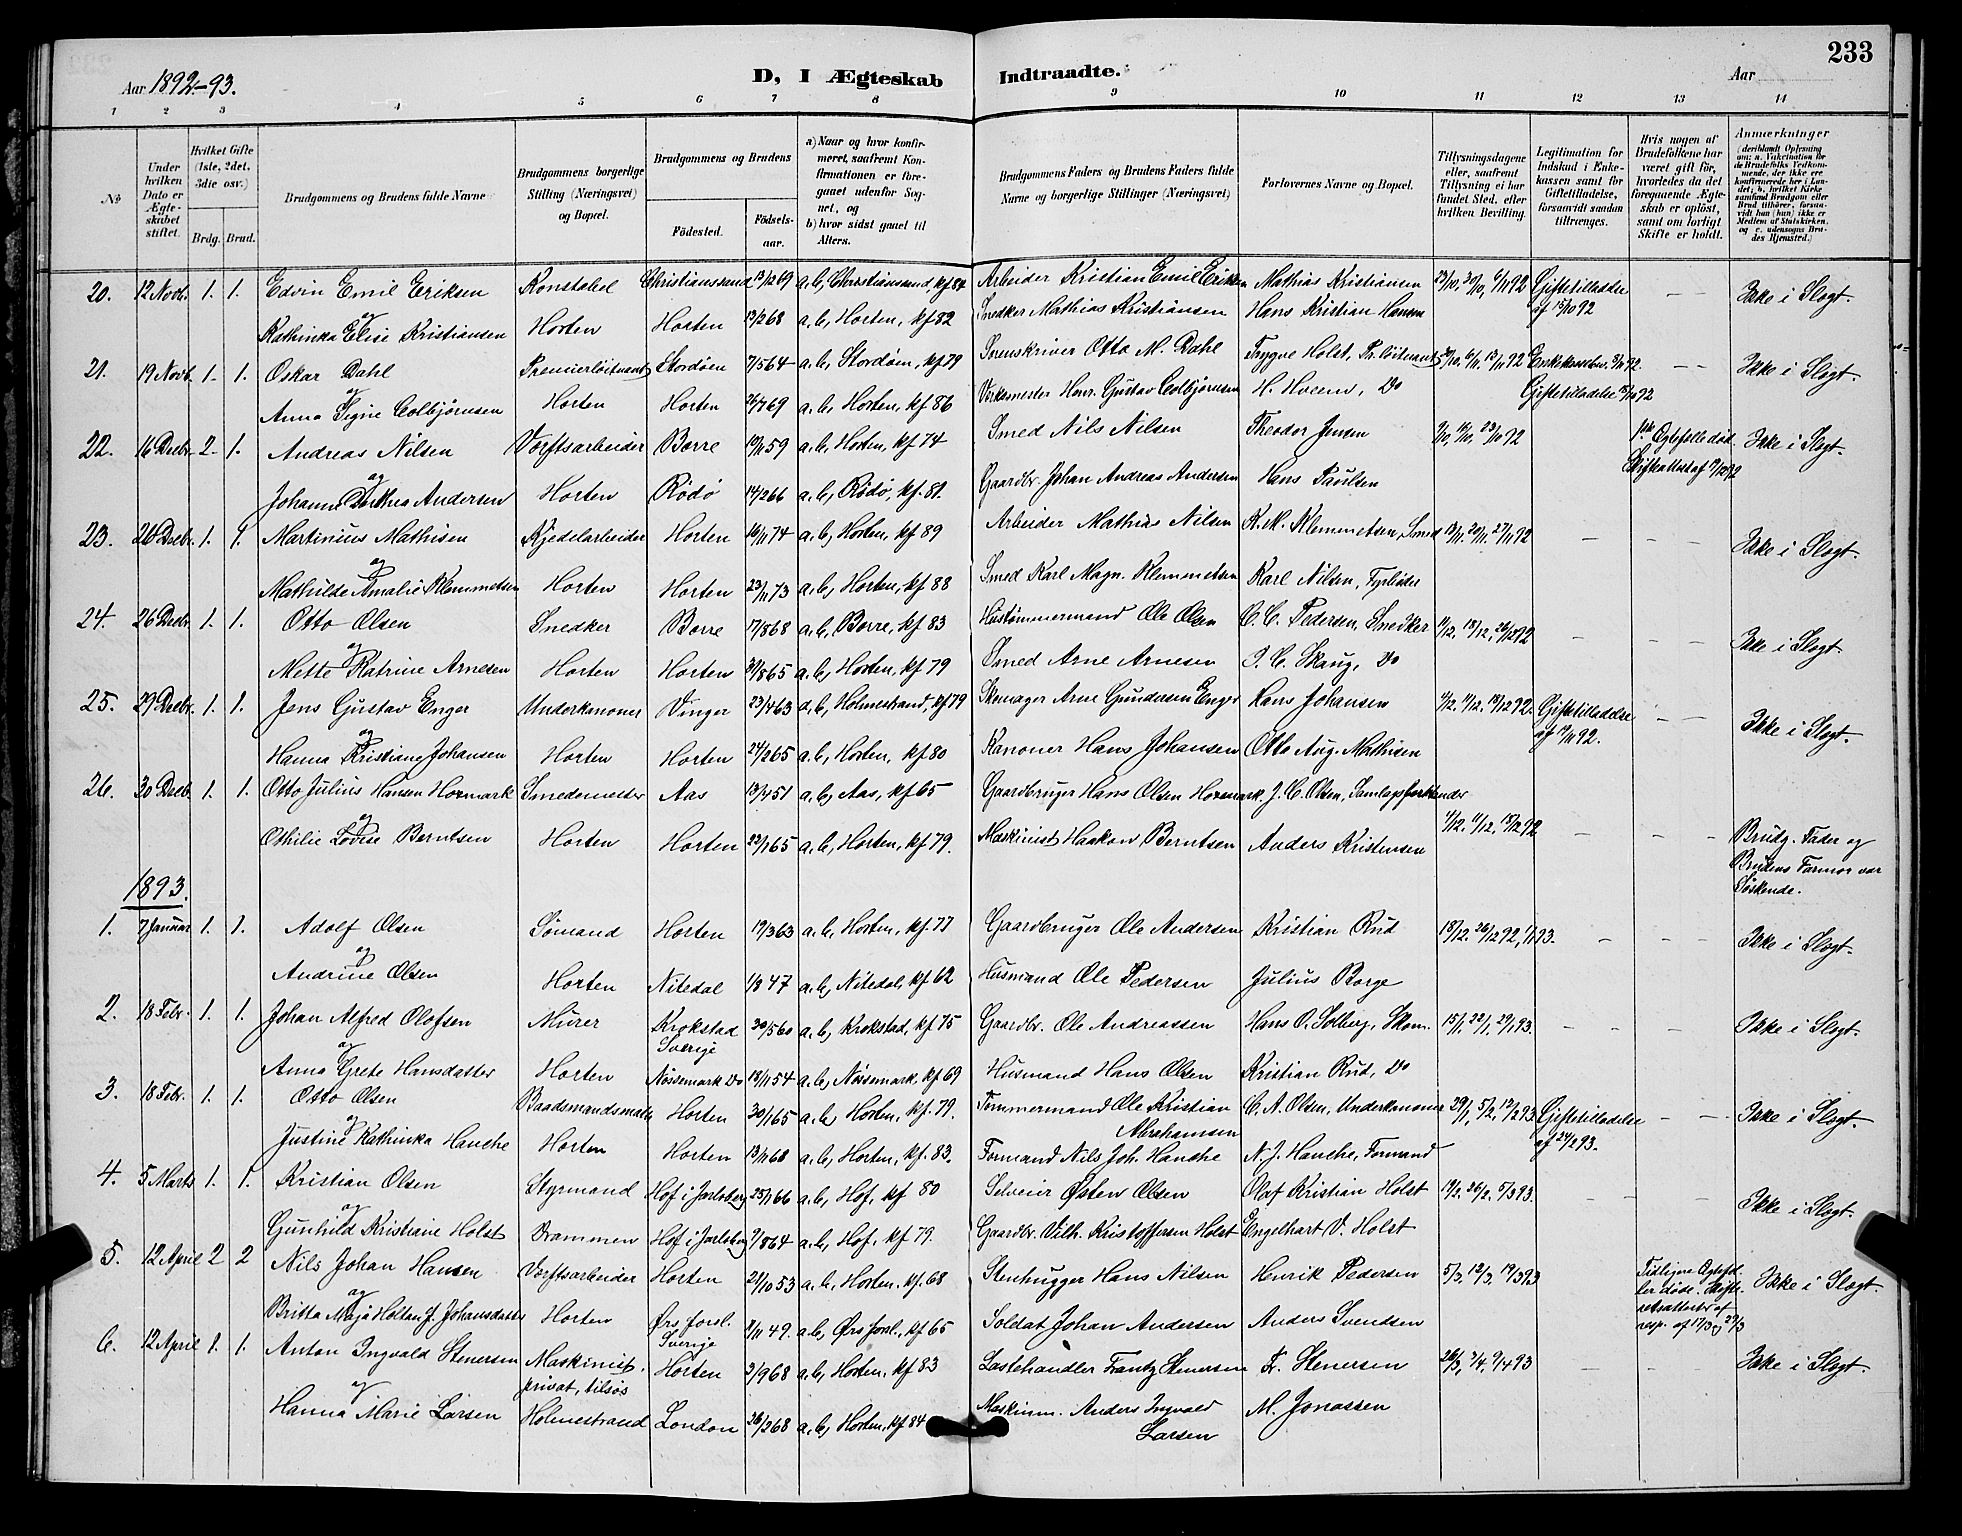 Aar 1892-93.
D, I Ægteskab
Indtraadte.
Aar
233
1 2 3 4 5 6 7 8 9 10 11 12 13 14
№
Under hvilken Dato er Ægteskabet stiftet.
Hvilket Gifte (1ste, 2det, 3die osv.)
Brdg. Brud.
Brudgommens og Brudens fulde Navne
Brudgommens borgerlige Stilling (Næringsvei) og Bopæl.
Brudgommens og Brudens
Fødested. Fødselsaar.
a) Naar og hvor konfirmeret, saafremt Konfirmationen er foregaaet udenfor Sognet, og b) hvor sidst gaaet til Alters.
Brudgommens Faders og Brudens Faders fulde Navne og borgerlige Stillinger (Næringsvei)
Forlovernes Navne og Bopæl.
Tillysningsdagene eller, saafremt Tillysning ei har fundet Sted, efter hvilken Bevilling.
Legitimation for Indskud i Enkekassen samt for Giftetilladelse, forsaavidt saadan tiltrænges.
Hvis nogen af Brudefolkene har været gift før, hvorledes da det foregaaende Ægteskab er opløst, samt om lovligt Skifte er holdt.
Anmærkninger (deriblandt Oplysning om: a. Vakcination for de Brudefolks Vedkommende, der ikke ere konfirmerede her i Landet; b. hvilket Kirkesamfund Brudgom eller Brud tilhører, forsaavidt han (hun) ikke er Medlem af Statskirken, og c. udensogns Brudes Hjemsted.)
20. 12 Novb. 1. 1. Edvin Emil Eriksen Konstabel Christianssand 13/12 69 a. b, Christianssand, kf 84 Arbeider Kristian Emil Eriksen Mathias Kristiansen 23/10, 30/10, 6/11 92 Giftetilladelse af 15/10 92 — — Ikke i Slegt.
og
Kathinka Elise Kristiansen Horten Horten 13/2 68 a. b, Horten, kf 82 Snedker Mathias Kristiansen Hans Kristian Hansen
21. 19 Novb. 1. 1. Oskar Dahl Premierløitnant Stordøen 7/5 64 a. b, Stordøen, kf 79 Sorenskriver Otto M. Dahl Trygve Holst, Pr.løitnant 30/10, 6/11, 13/11 92 Giftetilladelse 92 — — Ikke i Slegt.
og
Anna Signe Colbjørnsen Horten Horten 26/7 69 a. b, Horten, kf 86 Værksmester Hans Gustav Colbjørnsen
22. 16 Decbr. 2. 1. Andreas Nilsen Værftsarbeider Borre 10/11 59 a. b, Horten, kf 74 Smed Nils Nilsen Theodor Jensen 9/10, 16/10, 23/10 92 1ste Egtefelle død Ikke i Slegt.
og
Johanne Dorthea Andersen Horten Rödö 14/2 66 a. b, Rödö, kf. 81. Gaardbr. Johan Andreas Andersen Hans Paulsen
23. 26 Decbr. 1. 1. Martinius Mathisen Kjedelarbeider Horten 16/11 74 a. b, Horten, kf 89 Arbeider Mathias Nilsen K. M. Klemmetsen, Smed 13/11, 20/11, 27/11 92 — — — Ikke i Slegt.
og
Mathilde Amalie Klemmetsen Horten Horten 23/11 73 a. b, Horten, kf 88 Smed Karl Magn. Klemmetsen Karl Nilsen, Fyrbøder
24. 26 Decbr. 1. 1. Otto Olsen Snedker Borre 17/8 68 a. b, Borre, kf 83 Hustømmermand Ole Olsen C. C. Pedersen, Snedker 11/12, 18/12, 26/12 92 — — Ikke i Slegt.
og
Mette Katrine Arnesen Horten Horten 31/8 65 a. b, Horten, kf 79 Smed Arne Arnesen J. C. Skaug, do
25. 29 Decbr. 1. 1. Jens Gustav Enger Underkanoner Vinger 23/4 63 a. b, Holmestrand, kf 79 Skomager Arne Gundersen Enger Hans Johansen 4/12, 11/12, 18/12 92. Giftetilladelse af 92. — — Ikke i Slegt.
og
Hanna Kristiane Johansen Horten Horten 24/2 65 a. b, Horten, kf 80 Kanoner Hans Johansen Otto Aug. Mathisen
26. 30 Decb. 1. 1. Otto Julius Hansen Hozmark Smedemester Aas 13/4 51 a. b, Aas, kf 65 Gaardbruger Hans Olsen Hozmark. J. C. Olsen,
og
Othilie Lovise Berntsen Horten Horten 22/1 65 a. b, Horten, kf 79. Maskinist Haakon Berntsen Anders Kristensen 4/12, 11/12, 18/12 92 — — — Brudg. Fader og Brudens Farmor var Søskende.
1893.
1. 7 Januar 1. 1. Adolf Olsen Sømand Horten 19/3 63 a. b, Horten, kf. 77 Gaardbruger Ole Andersen Kristian Rud 18/12, 26/12 92, 1/1 93. — — — Ikke i Slegt.
og
Andrine Olsen Horten Nitedal 1/8 47 a. b, Nitedal, kf 62 Husmand Ole Pedersen Julius Borge
2. 18 Febr. 1. 1. Johan Alfred Olofsen Murer Krokstad Sverige 30/5 60 a. b, Krokstad, kf 75 Gaardbr. Ole Andreassen Hans O. Solberg, Skom. 15/1, 22/1, 29/1 93. — — — Ikke i Slegt.
og
Anna Grete Hansdatter Horten Nössemark do 18/11 54 a. b, Nössemark, kf 69 Husmand Hans Olsen Kristian Rud, do
3. 18 Febr. 1. 1. Otto Olsen Baadsmandsmath Horten 30/1 65 a. b, Horten, kf. 79. Tømmermand Ole Kristian Abrahamsen C. A. Olsen, Underkanoner 29/1, 5/2, 12/2 93. Giftetilladelse af 24/1 93. — — Ikke i Slegt.
og
Justine Kathinka Hanche Horten Horten 13/11 68 a. b, Horten, kf. 83. Formand Nils Joh. Hanche N. J. Hanche, Formand
4. 5 Marts 1. 1. Kristian Olsen Styrmand Hof i Jarlsberg 25/1 66 a. b, Hof, kf 80 Selveier Østen Olsen Olaf Kristian Holst 19/2, 26/2, 5/3 93. — — — Ikke i Slegt.
og
Gunhild Kristiane Holst Drammen Hof i Jarlsberg 9/8 64 a. b, Hof, kf 79. Gaardbr. Vilh. Kristoffersen Holst Engelhart V. Holst
5. 12 April 2 2 Nils Johan Hansen Værftsarbeider Horten 21/10 53 a. b. Horten. kf. 68 Stenhugger Hans Nilsen Henrik Pedersen 5/3, 12/3, 19/3 93 Tidligere Egtefeller døde. Skifteretsattester af resp. af 17/3 og 27/3 Ikke i Slegt.
og
Britta Maja Holtan f. Johansdatter Horten Örs forsl. Sverige 8/11 49. a. b, Örs forsl., kf 65 Soldat Johan Andersen Anders Svendsen
6. 12 April 1. 1. Anton Ingvald Stenersen Maskinist. privat, tilsøs Horten 2/9 68 a. b, Horten. kf 83 Lastehandler Frantz Stenersen Fr. Stenersen 26/3, 3/4, 9/4 93 — — Ikke i Slegt.
og
Hanna Marie Larsen Holmestrand London 26/2 68 a. b, Horten. kf 84 Maskinm. Anders Ingvald Larsen M. Jonassen